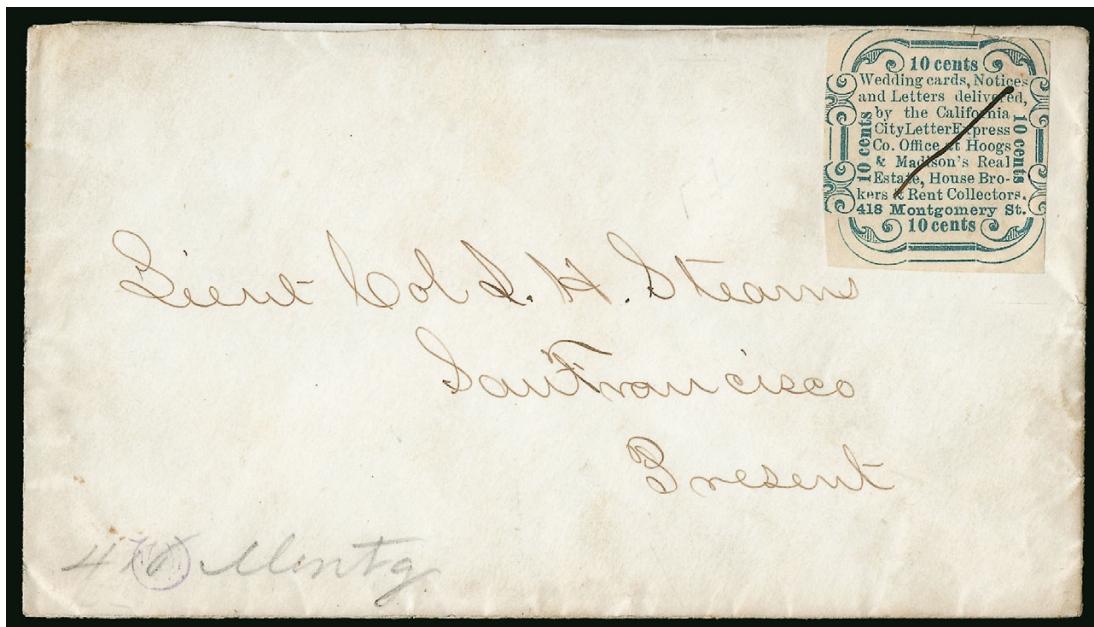 10 cents
Wedding cards, Notices
and Letters delivered,
by the California
City Letter Express
Co. Office at Hoogs
& Madison's Real
Estate, House Bro-
kers & Rent Collectors,
418 Montgomery St.
10 cents
10 cents
10 cents
Lieut Col S. H. Stearns
San Francisco
Present
Montg.